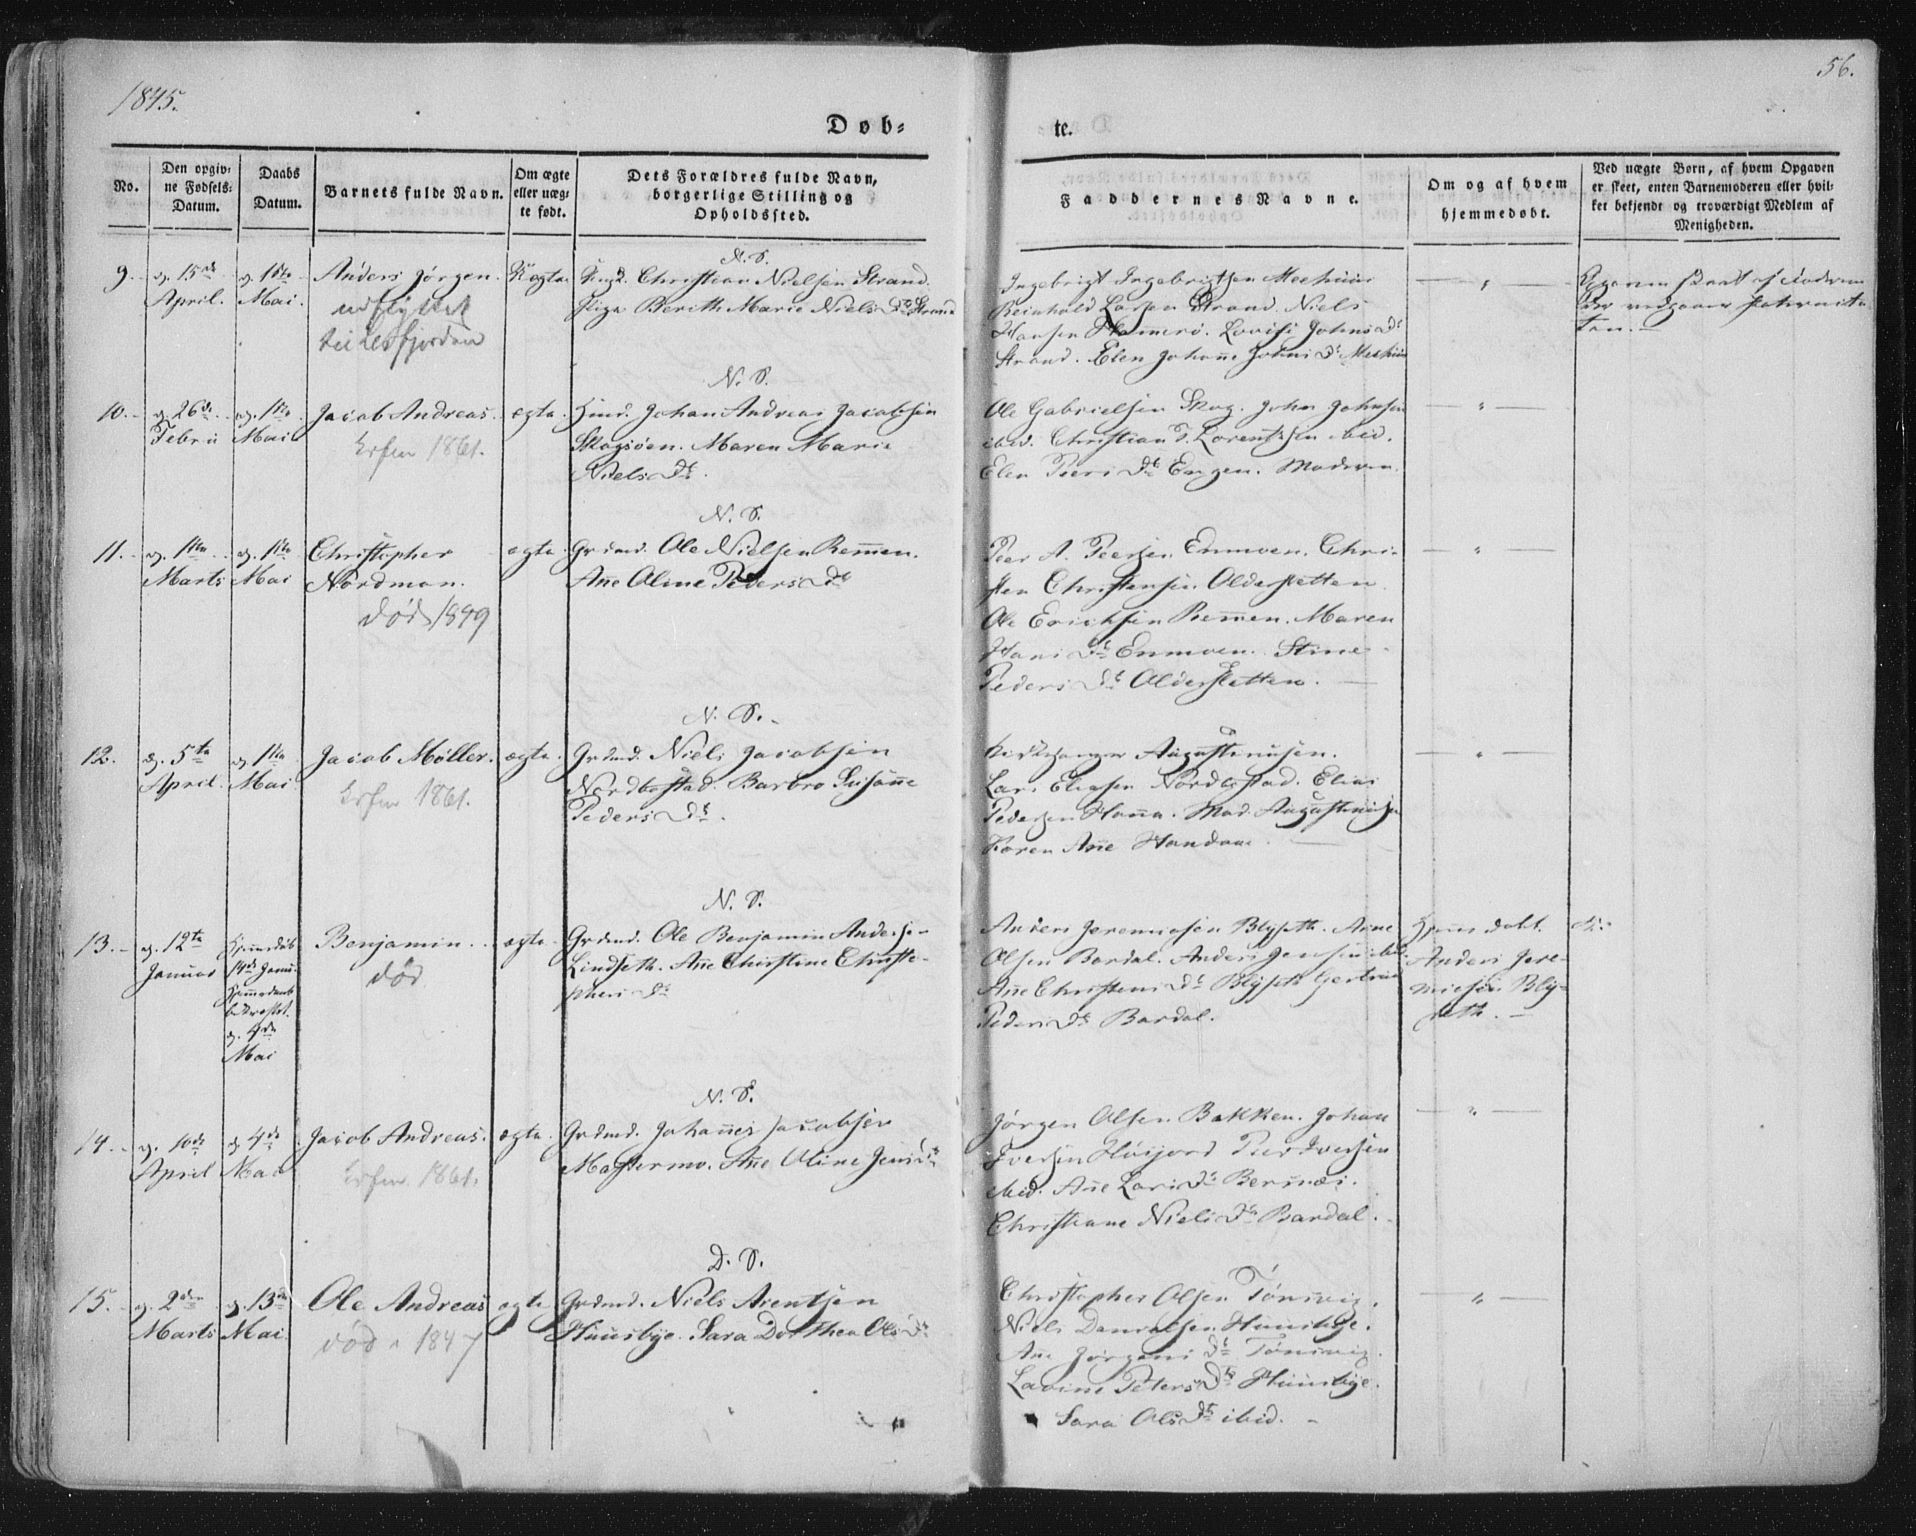 1845.
56.
Døb-
te.
No.
Den opgiv-
ne Fødsels-
Datum.
Daabs
Datum.
Barnets fulde Navn.
Om ægte
eller uæg-
te født.
Dets Forældres fulde Navn,
borgerlige Stilling og
Opholdssted.
Faddernes Navne.
Om og af hvem
hjemmedøbt.
Ved uægte Børn, af hvem Opgaven
er skeet, enten Barnemoderen eller hvil-
ket bekjendt og troværdigt Medlem af
Menigheden.
9. d. 15de
April.
d. 1ste
Mai.
Anders Jørgen.
udflyttet
til Lefjorden
Uægte.
N. S.
Ungk. Christian Nielsen Strand.
Pige Berith Marie Niels Dr Strand
Ingebrigt Ingebrigtsen
Reinhold Larsen Strand. Niels
Hansen Hammerø. Lovise Johns Dr
Strand. Elen Johanne Johns Dr
10. d. 26de
Febru
d. 1ste
Mai
Jacob Andreas.
Krfm 1861.
ægte.
N. S.
Huusm. Johan Andreas Jacobsen
Skogsøen. Maren Marie
Niels Dr.
Ole Gabrielsen Skog. John Johnsen
ibid. Christian Lorentzsen ibid.
Elen Peers Dr Engen. Moderen.
11. d. 1ste
Marts
d. 1ste
Mai
Christopher
Nordman.
død 1849
ægte
N. S.
Grdmd. Ole Nielsen Remmen.
Ane Oline Peders Dr
Peer A. Peersen Enmoen. Chri-
sten Christensen Oldersletten
Ole Erichsen Remmen. Maren
Hans Dr Enmoen. Stine
Peders Dr Oldersletten.
12. d. 5te
April.
d. 1ste
Mai.
Jacob Møller.
Krfm 1861.
ægte.
N. S.
Grdmd. Niels Jacobsen
Nordbostad. Barbro Susanne
Peders Dr.
Kirkesanger Augustinusen.
Lars Eliasen Nordbostad. Elias
Pedersen Hanna. Mad. Augustinusen
Karen Ane Handam.
13. d. 12te
Januar
Hjemmedøb
Janu.
bekræftet.
d. 4de
Mai
Benjamin.
død
ægte.
N. S.
Grdmd. Ole Benjamin Anderse-
Lindseth. Ane Christine Christo-
phers Dr
Anders Jeremiasen Blyseth. Arne
Olsen Bardal. Anders Jensen ibid.
Ane Christens Dr Blyseth Gertrud
Peders Dr Bardal.
Hjemmedøbt.
Anders Jere-
miesen Bly-
seth.
14. d. 10de
April
d. 4de
Mai
Jacob Andreas.
Krfm. 1861.
ægte.
N. S.
Grdmd. Johannes Jacobsen
Mastermo. Ane Oline Jens Dr
Jørgen Olsen Bakken. Johan
Iversen Huusjord Peer Iversen
ibid. Ane Lars Dr Bersnæs.
Christiane Niels Dr Bardal.
15. d. 2den
Marts
d. 13de
Mai
Ole Andreas
død 1847
ægte
D. S.
Grdmd. Niels Arentsen
Huusbye. Sara Dorthea Ols Dr
Christopher Olsen Tønsvig.
Niels Danielsen Huusbye.
Ane Jørgens Dr Tønsvig.
Lavine Peters Dr Huusbye.
Sara Ols Dr ibid.